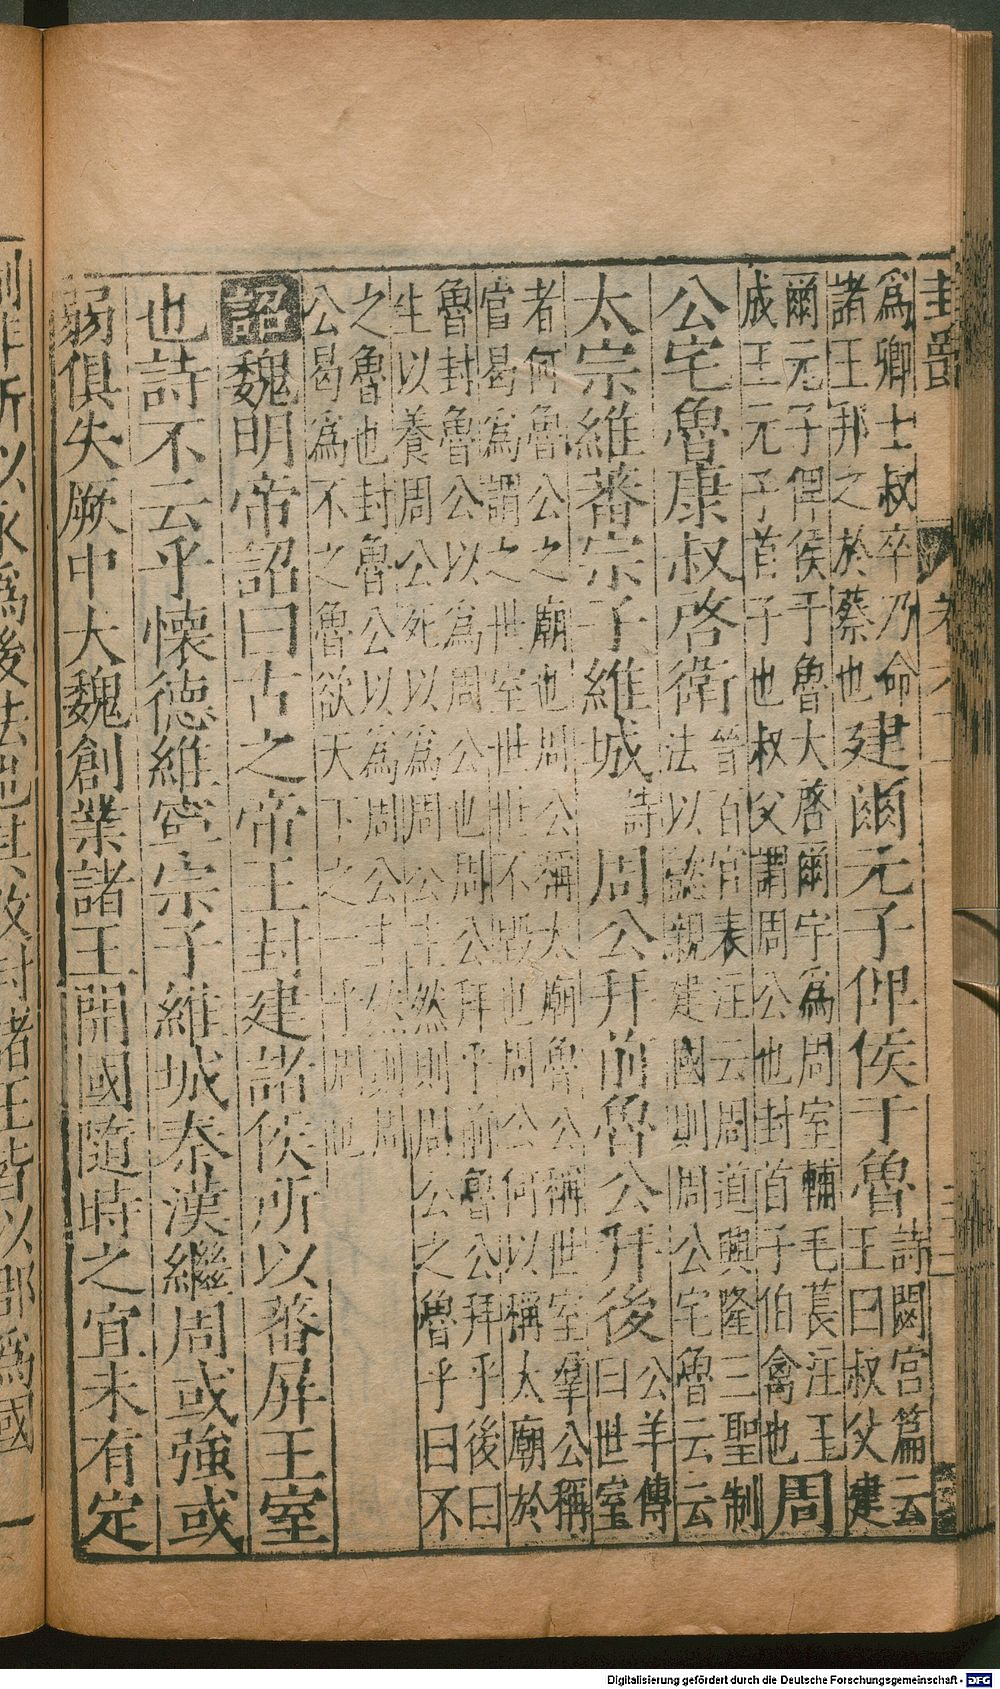 封爵
爲卿士叔卒乃命
諸王邦之於蔡也
建爾元子俾侯于魯
詩閟宮篇云
王曰叔父建
爾元子俾侯于魯大啓爾宇爲周室輔毛萇注王
成王元子首子也叔父謂周公也封首子伯禽也
周
公宅魯康叔啓衛
晉百官表注云周道興隆三聖制
法以懿親建國則周公宅魯云云
太宗維蕃宗子維城
詩
周公拜前魯公拜後
公羊傳
曰世室
者何魯公之廟也周公稱太廟魯公稱世室羣公稱
官曷爲謂之世室世世不毀也周公何以稱太廟於
魯封魯公以爲周公也周公拜乎前魯公拜乎後曰
生以養周公死以爲周公主然則周公之魯乎曰不
之魯也封魯公以爲周公主然則周
公曷爲不之魯欲天下之一乎周也
詔魏明帝詔曰古之帝王封建諸侯所以蕃屏王室
也詩不云乎懷德維寧宗子維城秦漢繼周或強或
弱俱失厥中大魏創業諸王開國隨時之宜未有定
制非所以永爲後法也其改封諸王皆以郡爲國
Digitalisierung gefördert durch die Deutsche Forschungsgemeinschaft - DFG